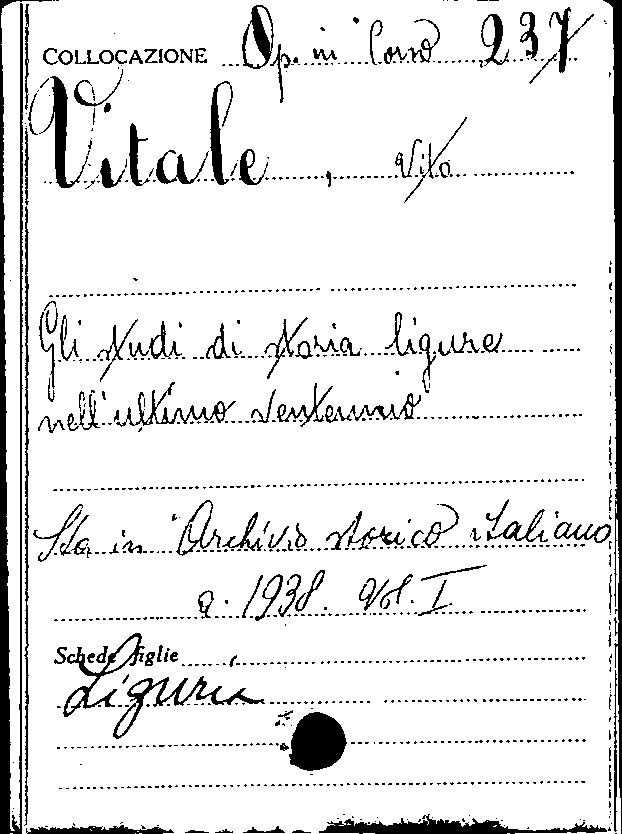 COLLOCAZIONE Op. in Corso 237
Vitale, Vito
Gli studi di storia ligure
nell'ultimo ventennio
Sta in Archivio storico italiano
a. 1938. Vol. I
Schede figlie
Liguria